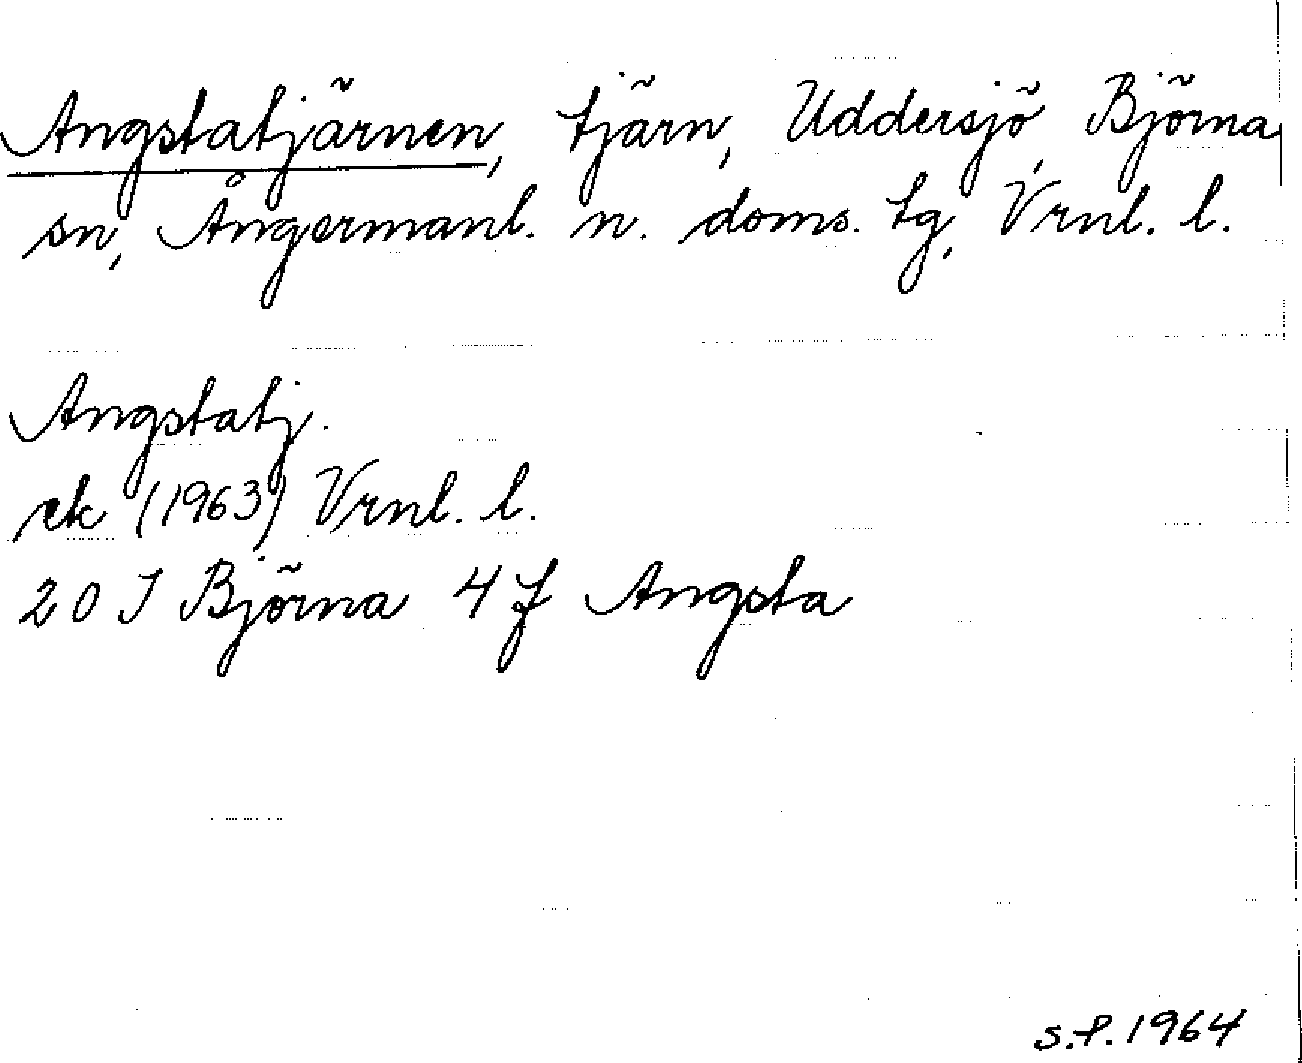 Angstatjärnen, tjärn, Uddersjö, Björna
sn, Ångermanl. n. doms. tg, Vrnl. l.
Angstatj.
ek (1963) Vrnl. l.
20 I Björna 4 f Angsta
S.F. 1964